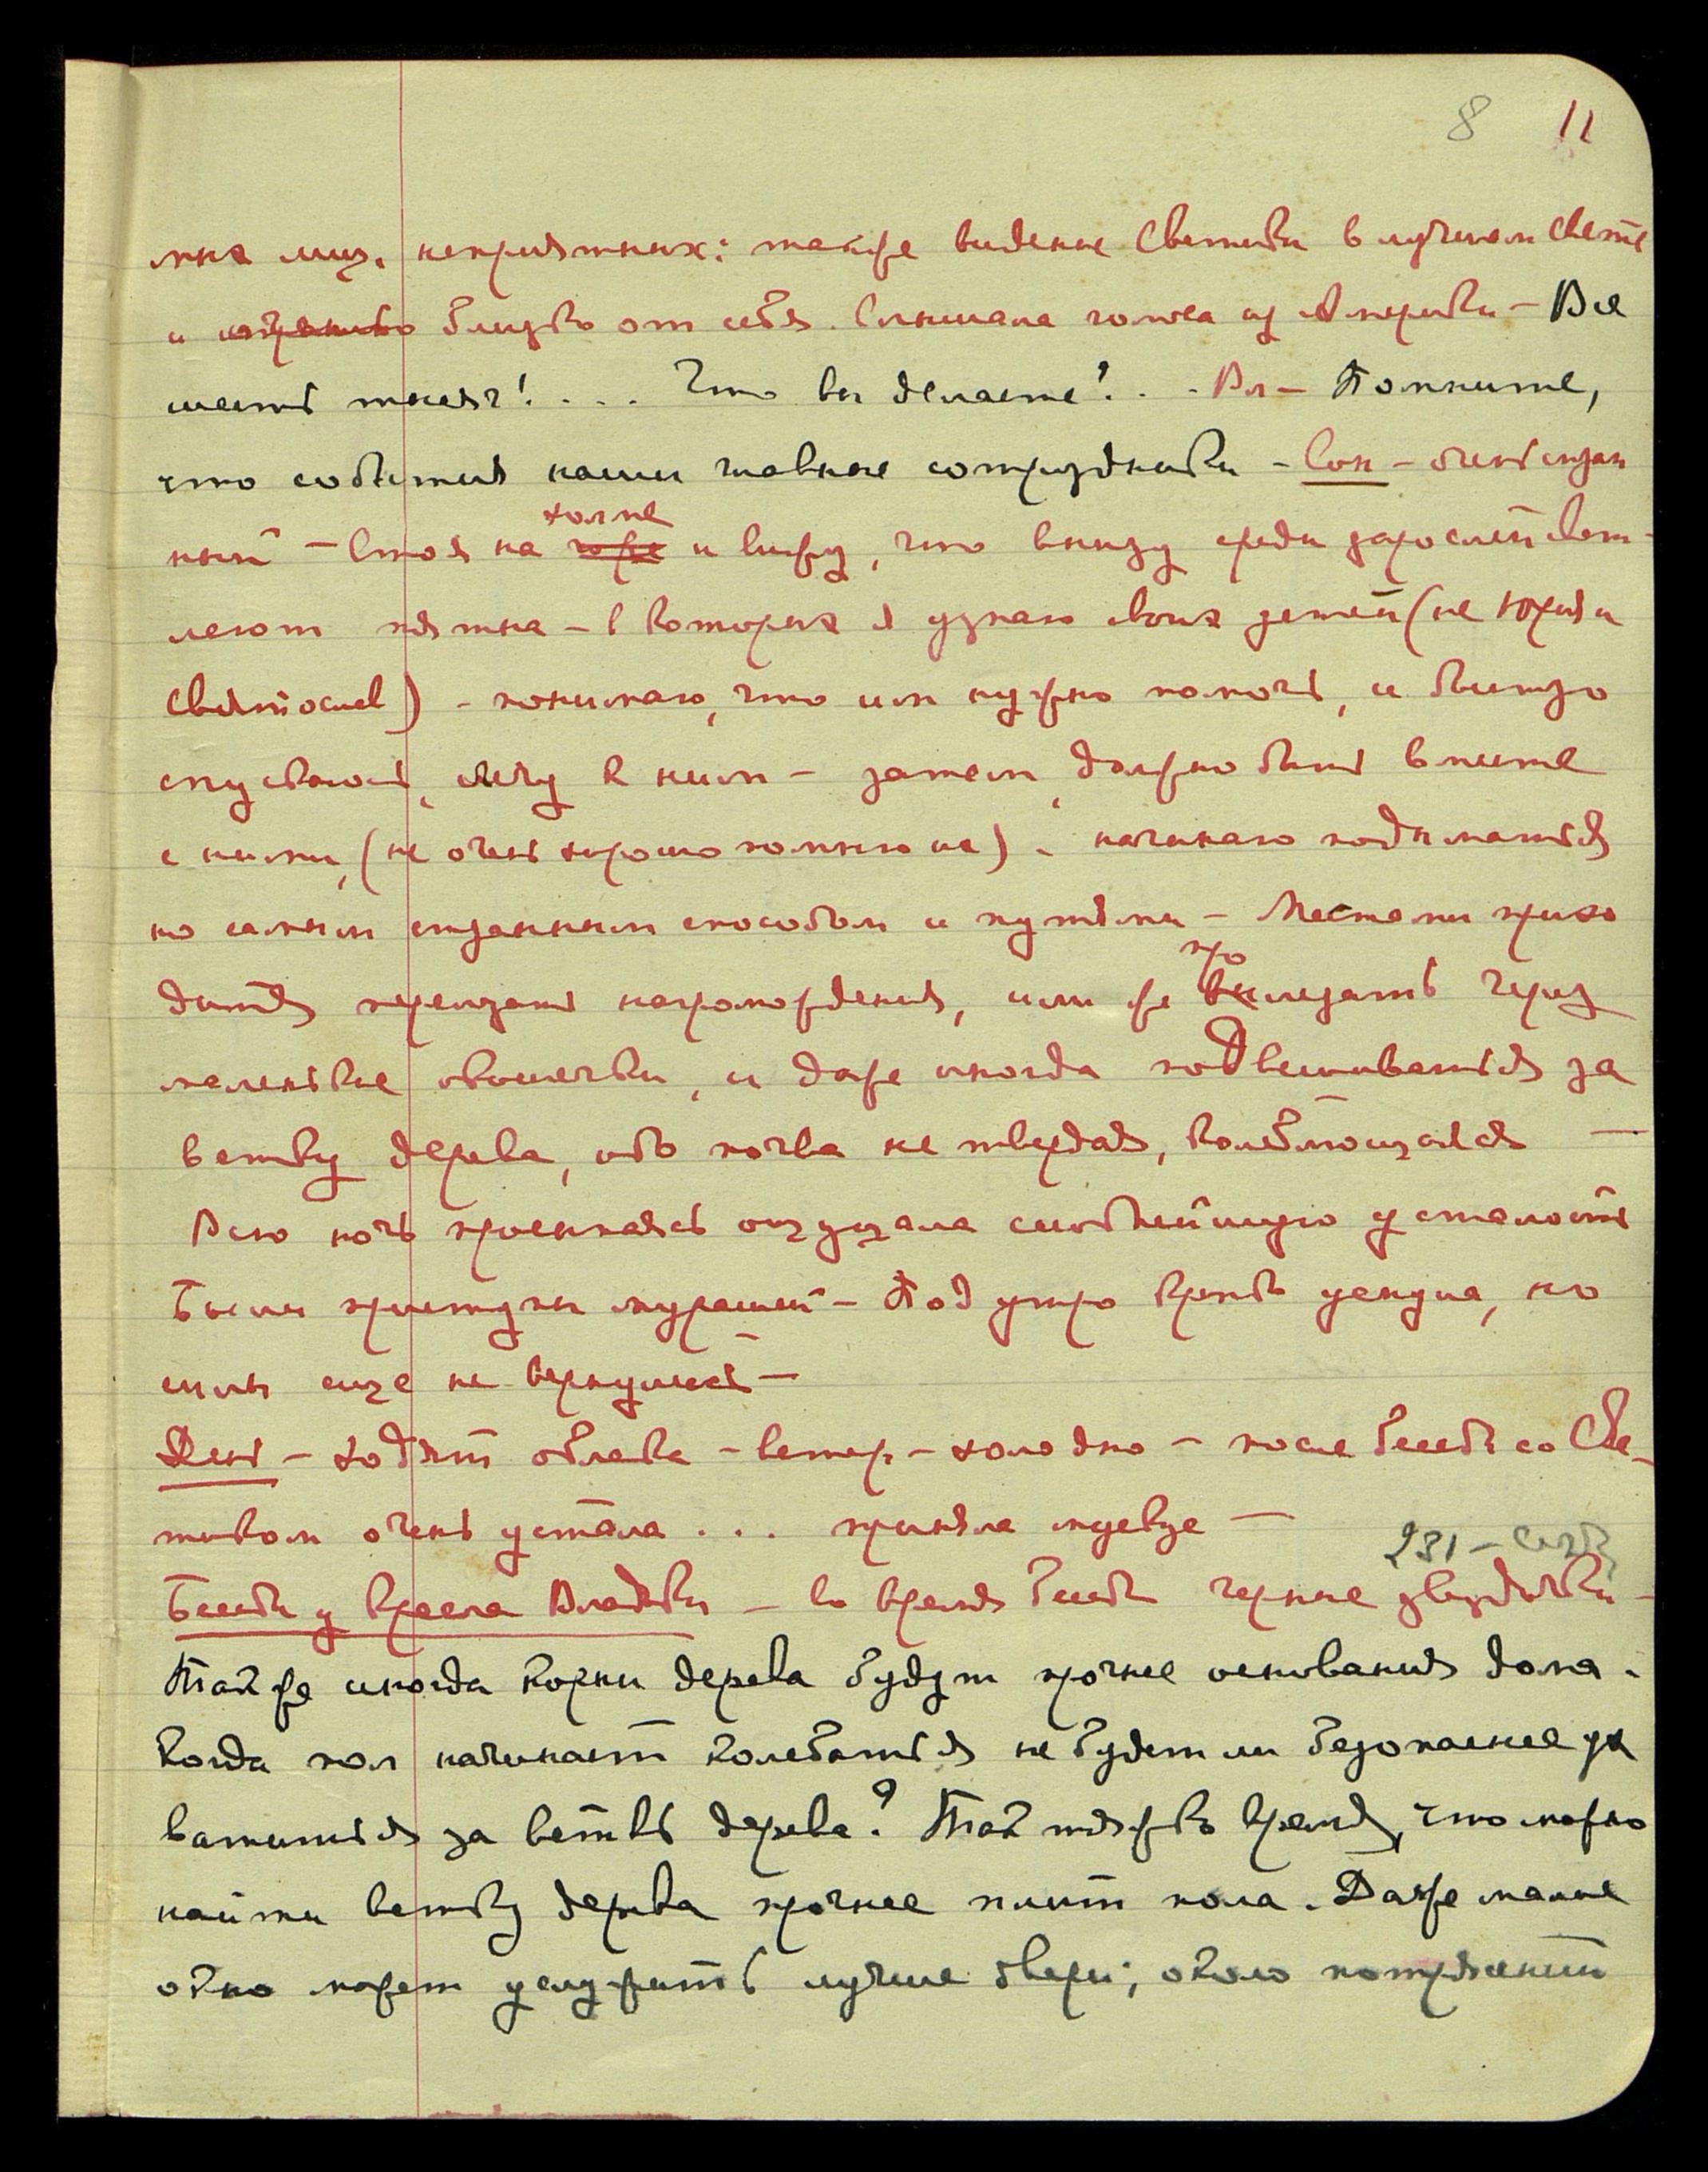 8 11
мня лиц. неприятных: также видение Светика в лучшем свете
и близко от себя. Слышала голоса из Америки — Все
шесть тысяч!.... Что вы делаете!.. - Вл — Помните,
что события наши главные сотрудники — Сон — очень стран
ный — Стоя на горе холме и вижу, что внизу среди зарослей свет-
леют пятна — в которых я узнаю своих детей (не Юрия и
Святослав) - понимаю, что им нужно помочь, и быстро
спускаюсь, бегу к ним — затем, должно быть вместе
с ними, (не очень хорошо помню ия). начинаю подыматься
по самым странным способам и путями — Местами прихо
дится перелезать нагромождения, или же пролезать через
маленькие окошечки, и даже иногда подвешиваться за
ветку дерева, ибо почва не твердая, колеблющаяся —
Всю ночь просыпаясь ощущала сильнейшую усталость
Были приступы мурашей — Под утро кровь уснула, но
силы еще не вернулись —
День — ходят облака — ветер — холодно — после беседы со Све-
тиком очень устала... приняла
231 —
Беседа у кресла Владыки — во время беседы черные звездочки —
Также иногда корни дерева будут прочнее основания дома.
Когда пол начинает колебаться не будет ли безопаснее ух
ватиться за ветвь дерева? Так тяжко время, что можно
найти ветвь дерева прочнее плит пола. Даже малое
окно может услужить лучше двери; около потрясений